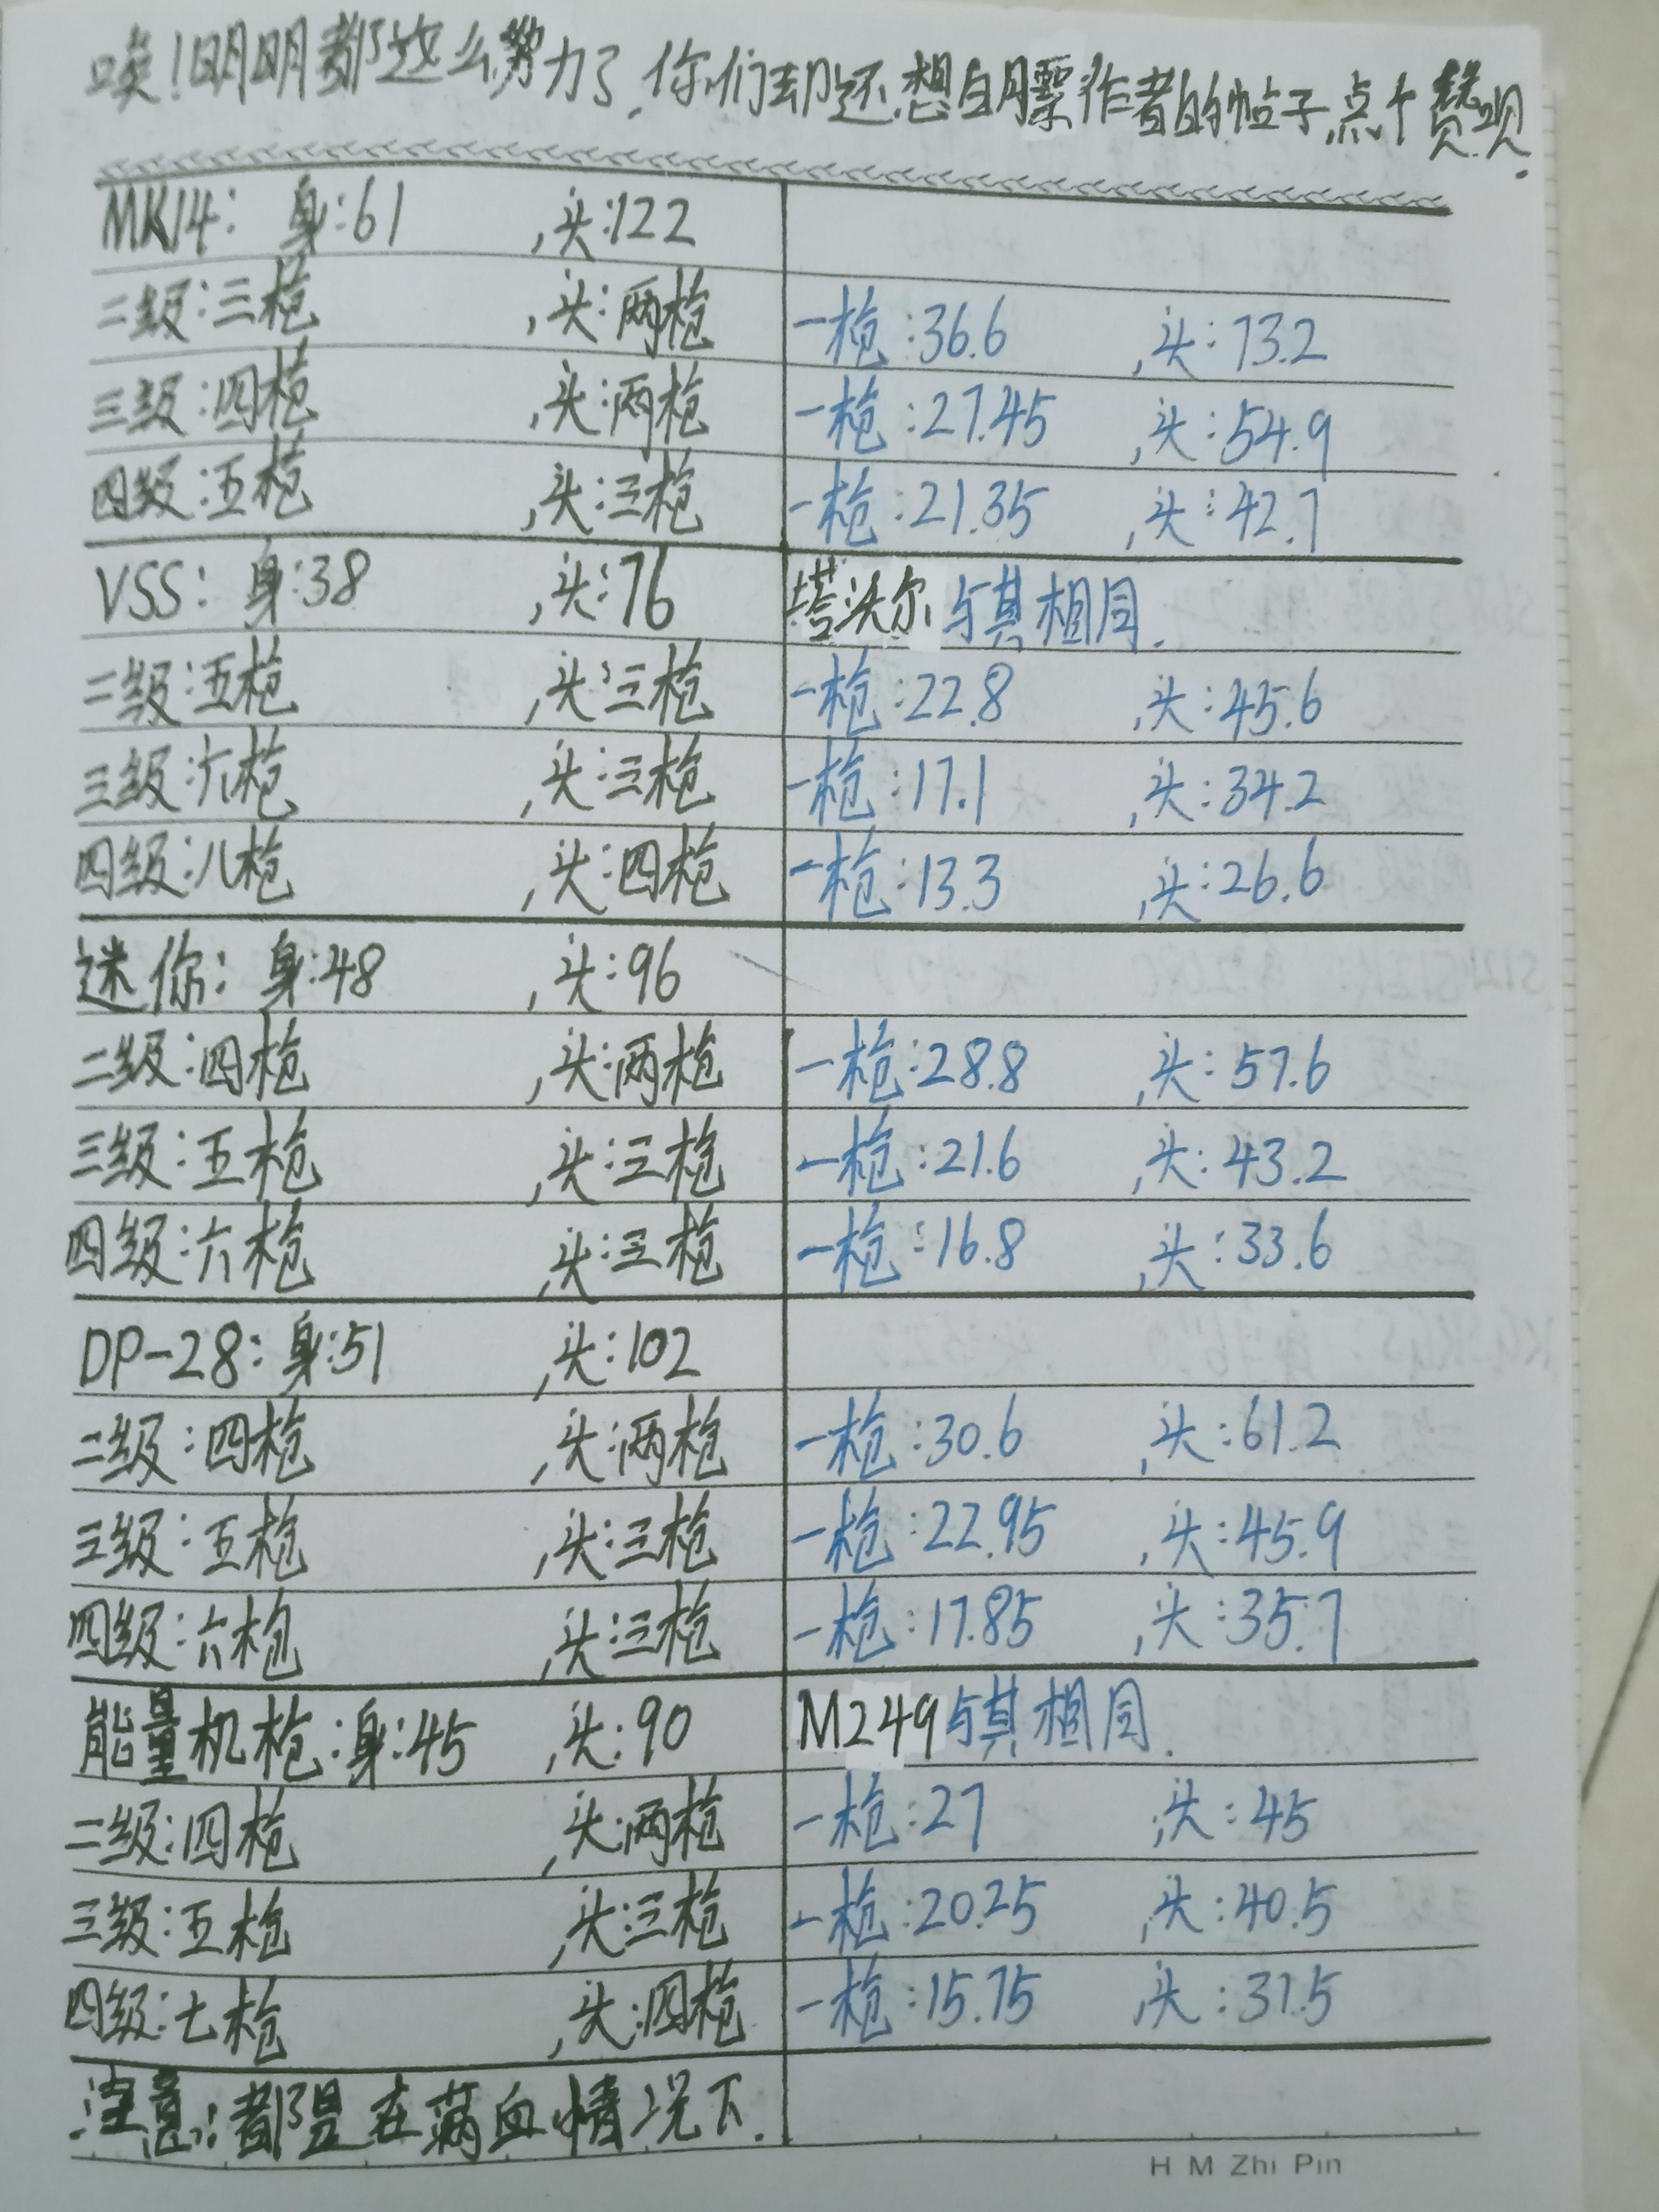 唉!明明都这么努力了,你们却还想白膘作者的帖子,点个赞呗.
MK14: 身:61 ,头:122
二级:三枪 ,头:两枪 一枪:36.6 ,头:73.2
三级:四枪 ,头:两枪 一枪:27.45 ,头:54.9
四级:五枪 ,头:三枪 一枪:21.35 ,头:42.7
VSS: 身:38 ,头:76 塔沃尔与其相同.
二级:五枪 ,头:三枪 一枪:22.8 ,头:45.6
三级:六枪 ,头:三枪 一枪:17.1 ,头:34.2
四级:八枪 ,头:四枪 一枪:13.3 ,头:26.6
迷你: 身:48 ,头:96
二级:四枪 ,头:两枪 一枪:28.8 ,头:57.6
三级:五枪 ,头:三枪 一枪:21.6 ,头:43.2
四级:六枪 ,头:三枪 一枪:16.8 ,头:33.6
DP-28:身:51 ,头:102
二级:四枪 ,头:两枪 一枪:30.6 ,头:61.2
三级:五枪 ,头:三枪 一枪:22.95 ,头:45.9
四级:六枪 ,头:三枪 一枪:17.85 ,头:35.7
能量机枪:身:45 ,头:90 M249与其相同.
二级:四枪 ,头:两枪 一枪:27 ,头:45
三级:五枪 ,头:三枪 一枪:20.25 ,头:40.5
四级:七枪 ,头:四枪 一枪:15.75 ,头:31.5
注意:都是在满血情况下.
H M Zhi Pin